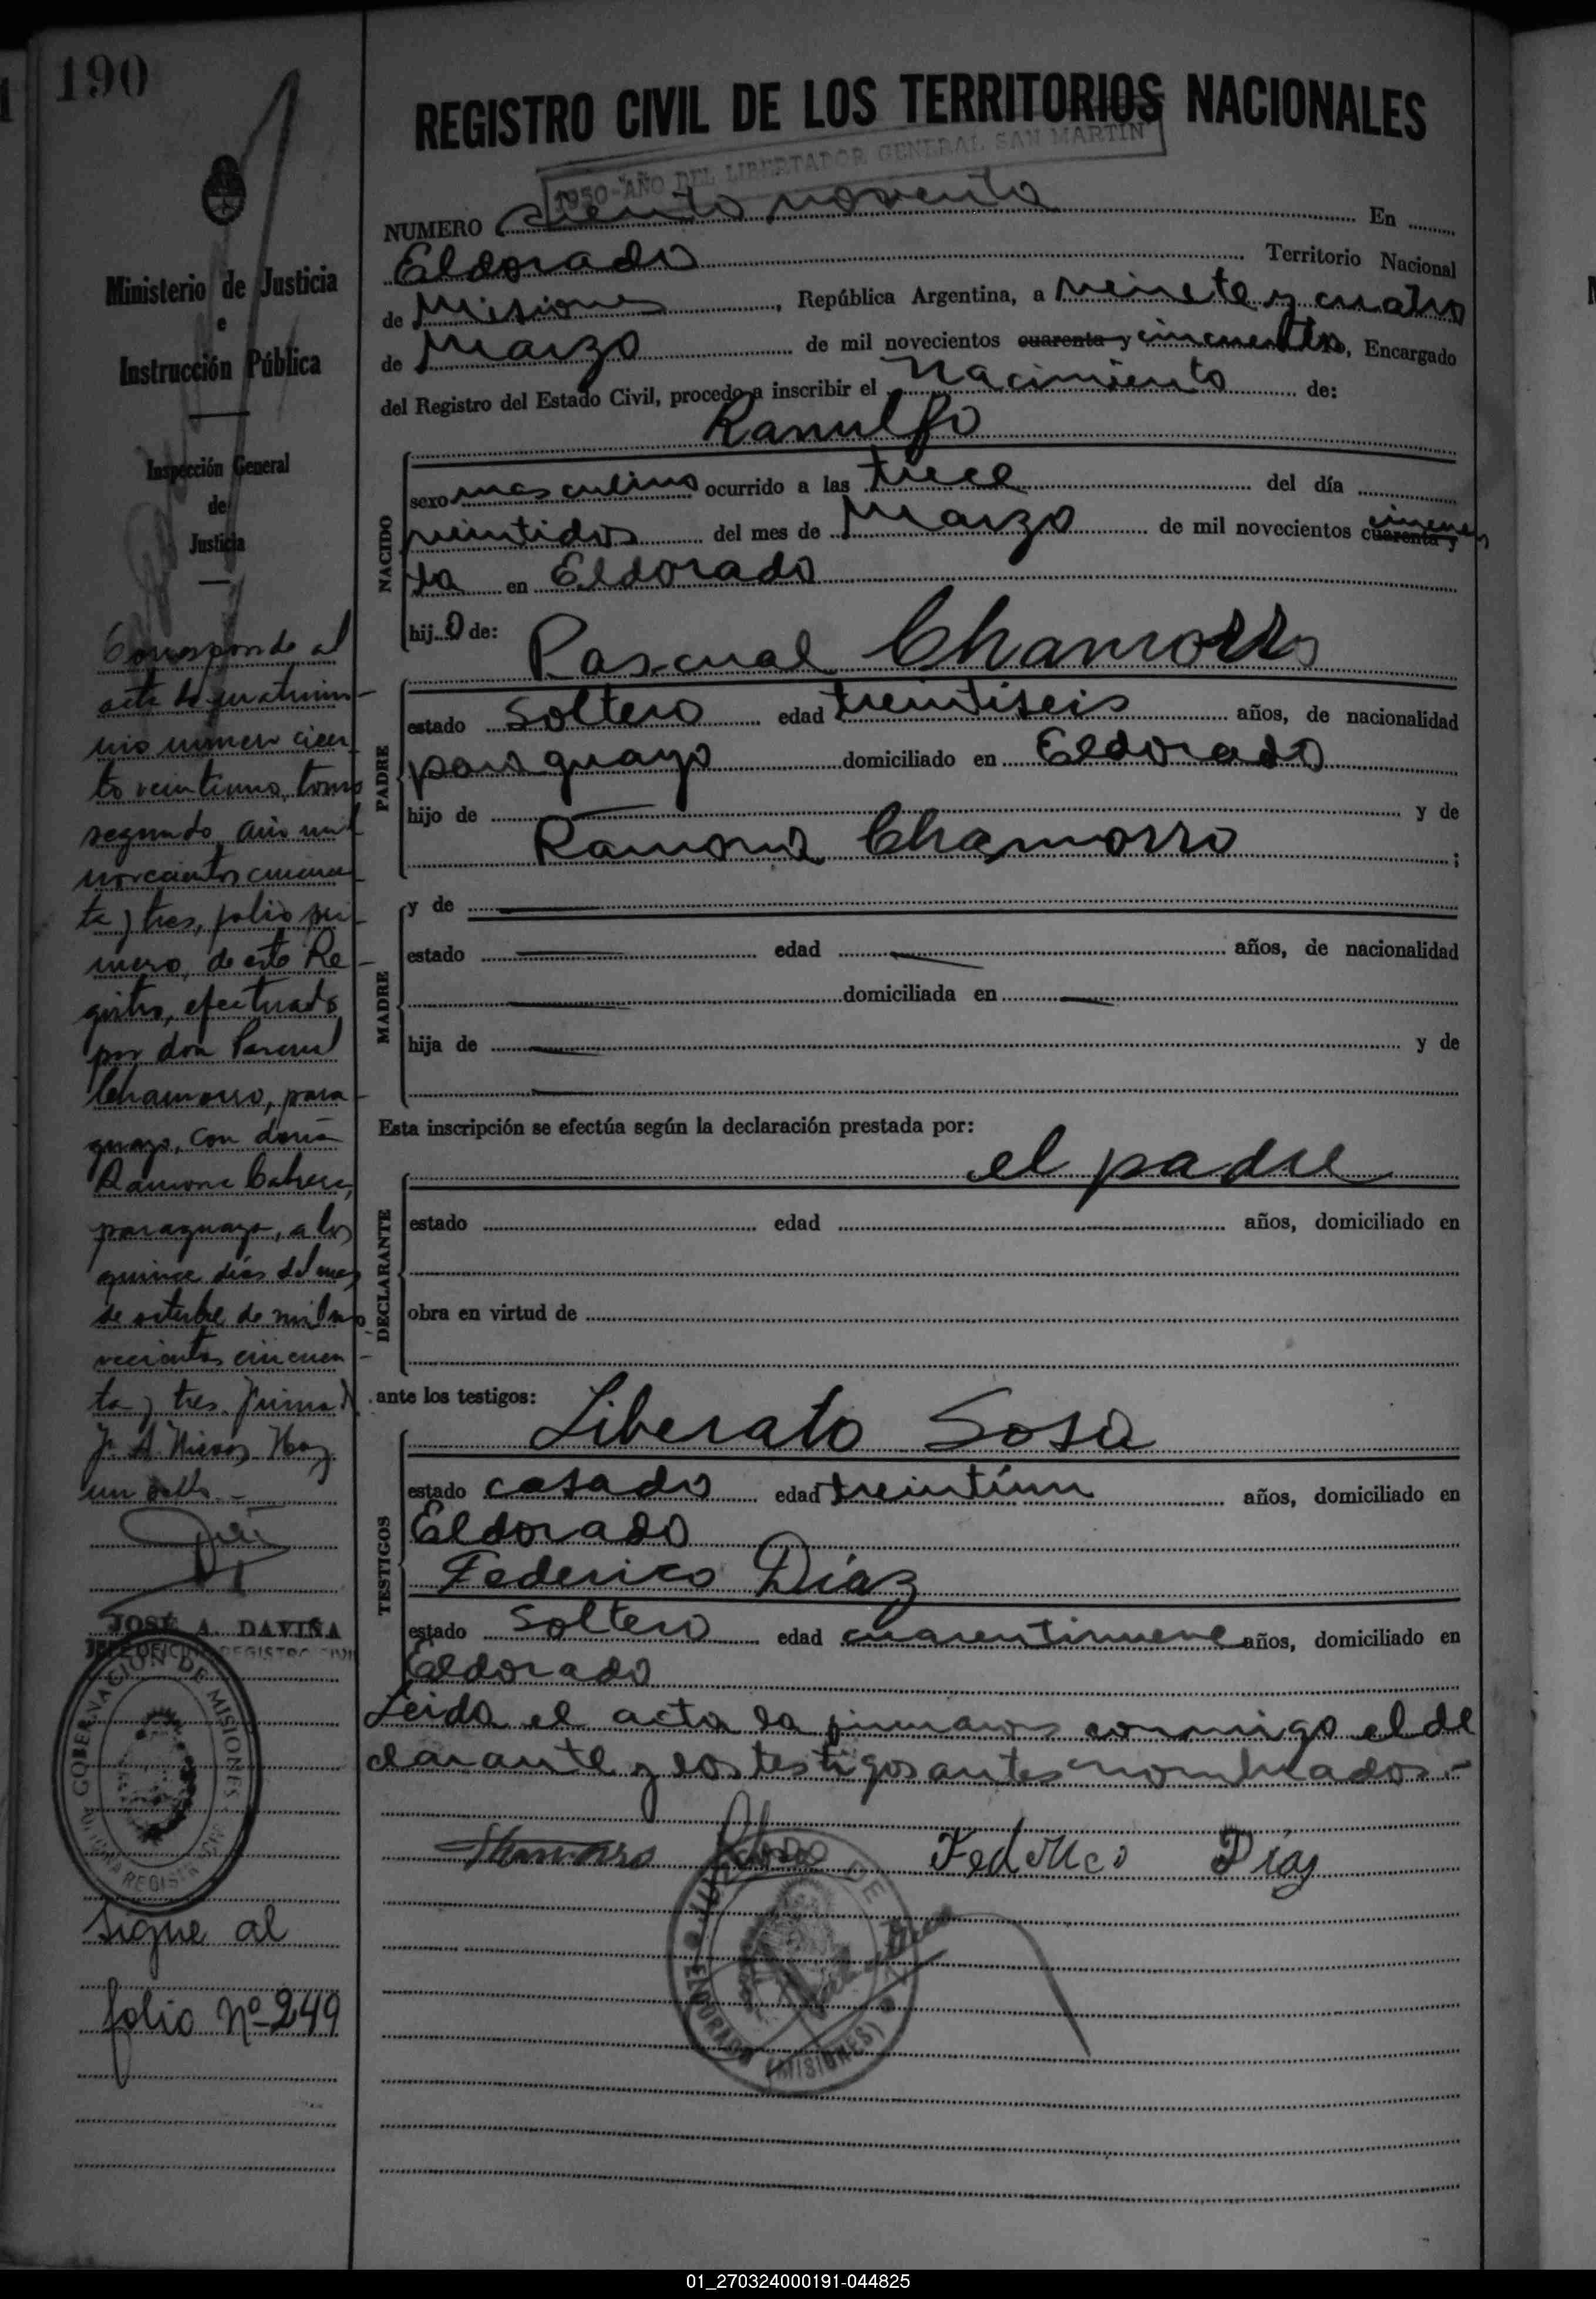 190
REGISTRO CIVIL DE LOS TERRITORIOS NACIONALES
1950-AÑO DEL LIBERTADOR GENERAL SAN MARTIN
NUMERO ciento noventa En
Eldorado Territorio Nacional
de Misiones, República Argentina, a veinte y cuatro
de Marzo de mil novecientos cuarenta y cincuenta, Encargado
del Registro del Estado Civil, procedo a inscribir el Nacimiento de:
Ranulfo
NACIDO
sexo masculino ocurrido a las trece del día
veintidos del mes de Marzo de mil novecientos cuarenta y cincuen
ta en Eldorado
hijo de:
Pascual Chamorro
PADRE
estado soltero edad treintiseis años, de nacionalidad
paraguayo domiciliado en Eldorado
hijo de y de
Ramona Chamorro ;
MADRE
y de
estado edad años, de nacionalidad
domiciliada en
hija de y de
Esta inscripción se efectúa según la declaración prestada por:
el padre
DECLARANTE
estado edad años, domiciliado en
obra en virtud de
ante los testigos:
Liberato Sosa
TESTIGOS
estado casado edad treintiun años, domiciliado en
Eldorado
Federico Díaz
estado soltero edad cuarentinueve años, domiciliado en
Eldorado
Leida el acta la firmamos conmigo el de
clarante y los testigos antes nombrados.-
Federico Díaz
ELDORADO (MISIONES)
Ministerio de Justicia
e
Instrucción Pública
Inspección General
de
Justicia
Corresponde al
acta de matrimo-
nio número cien-
to veintiuno, tomo
segundo, año mil
novecientos cincuen-
ta y tres, folio pri-
mero, de este Re-
gistro, efectuado
por don Pascual
Chamorro, para-
guayo, con doña
Ramona Cabrera,
paraguaya, a los
quince días del mes
de octubre de mil no-
vecientos cincuen-
ta y tres. Firmad
Hay
un sello.-
JOSÉ A. DAVIÑA
JEFE OFICINA REGISTRO CIVIL
GOBERNACION DE MISIONES
Sigue al
folio Nº 249
01_270324000191-044825